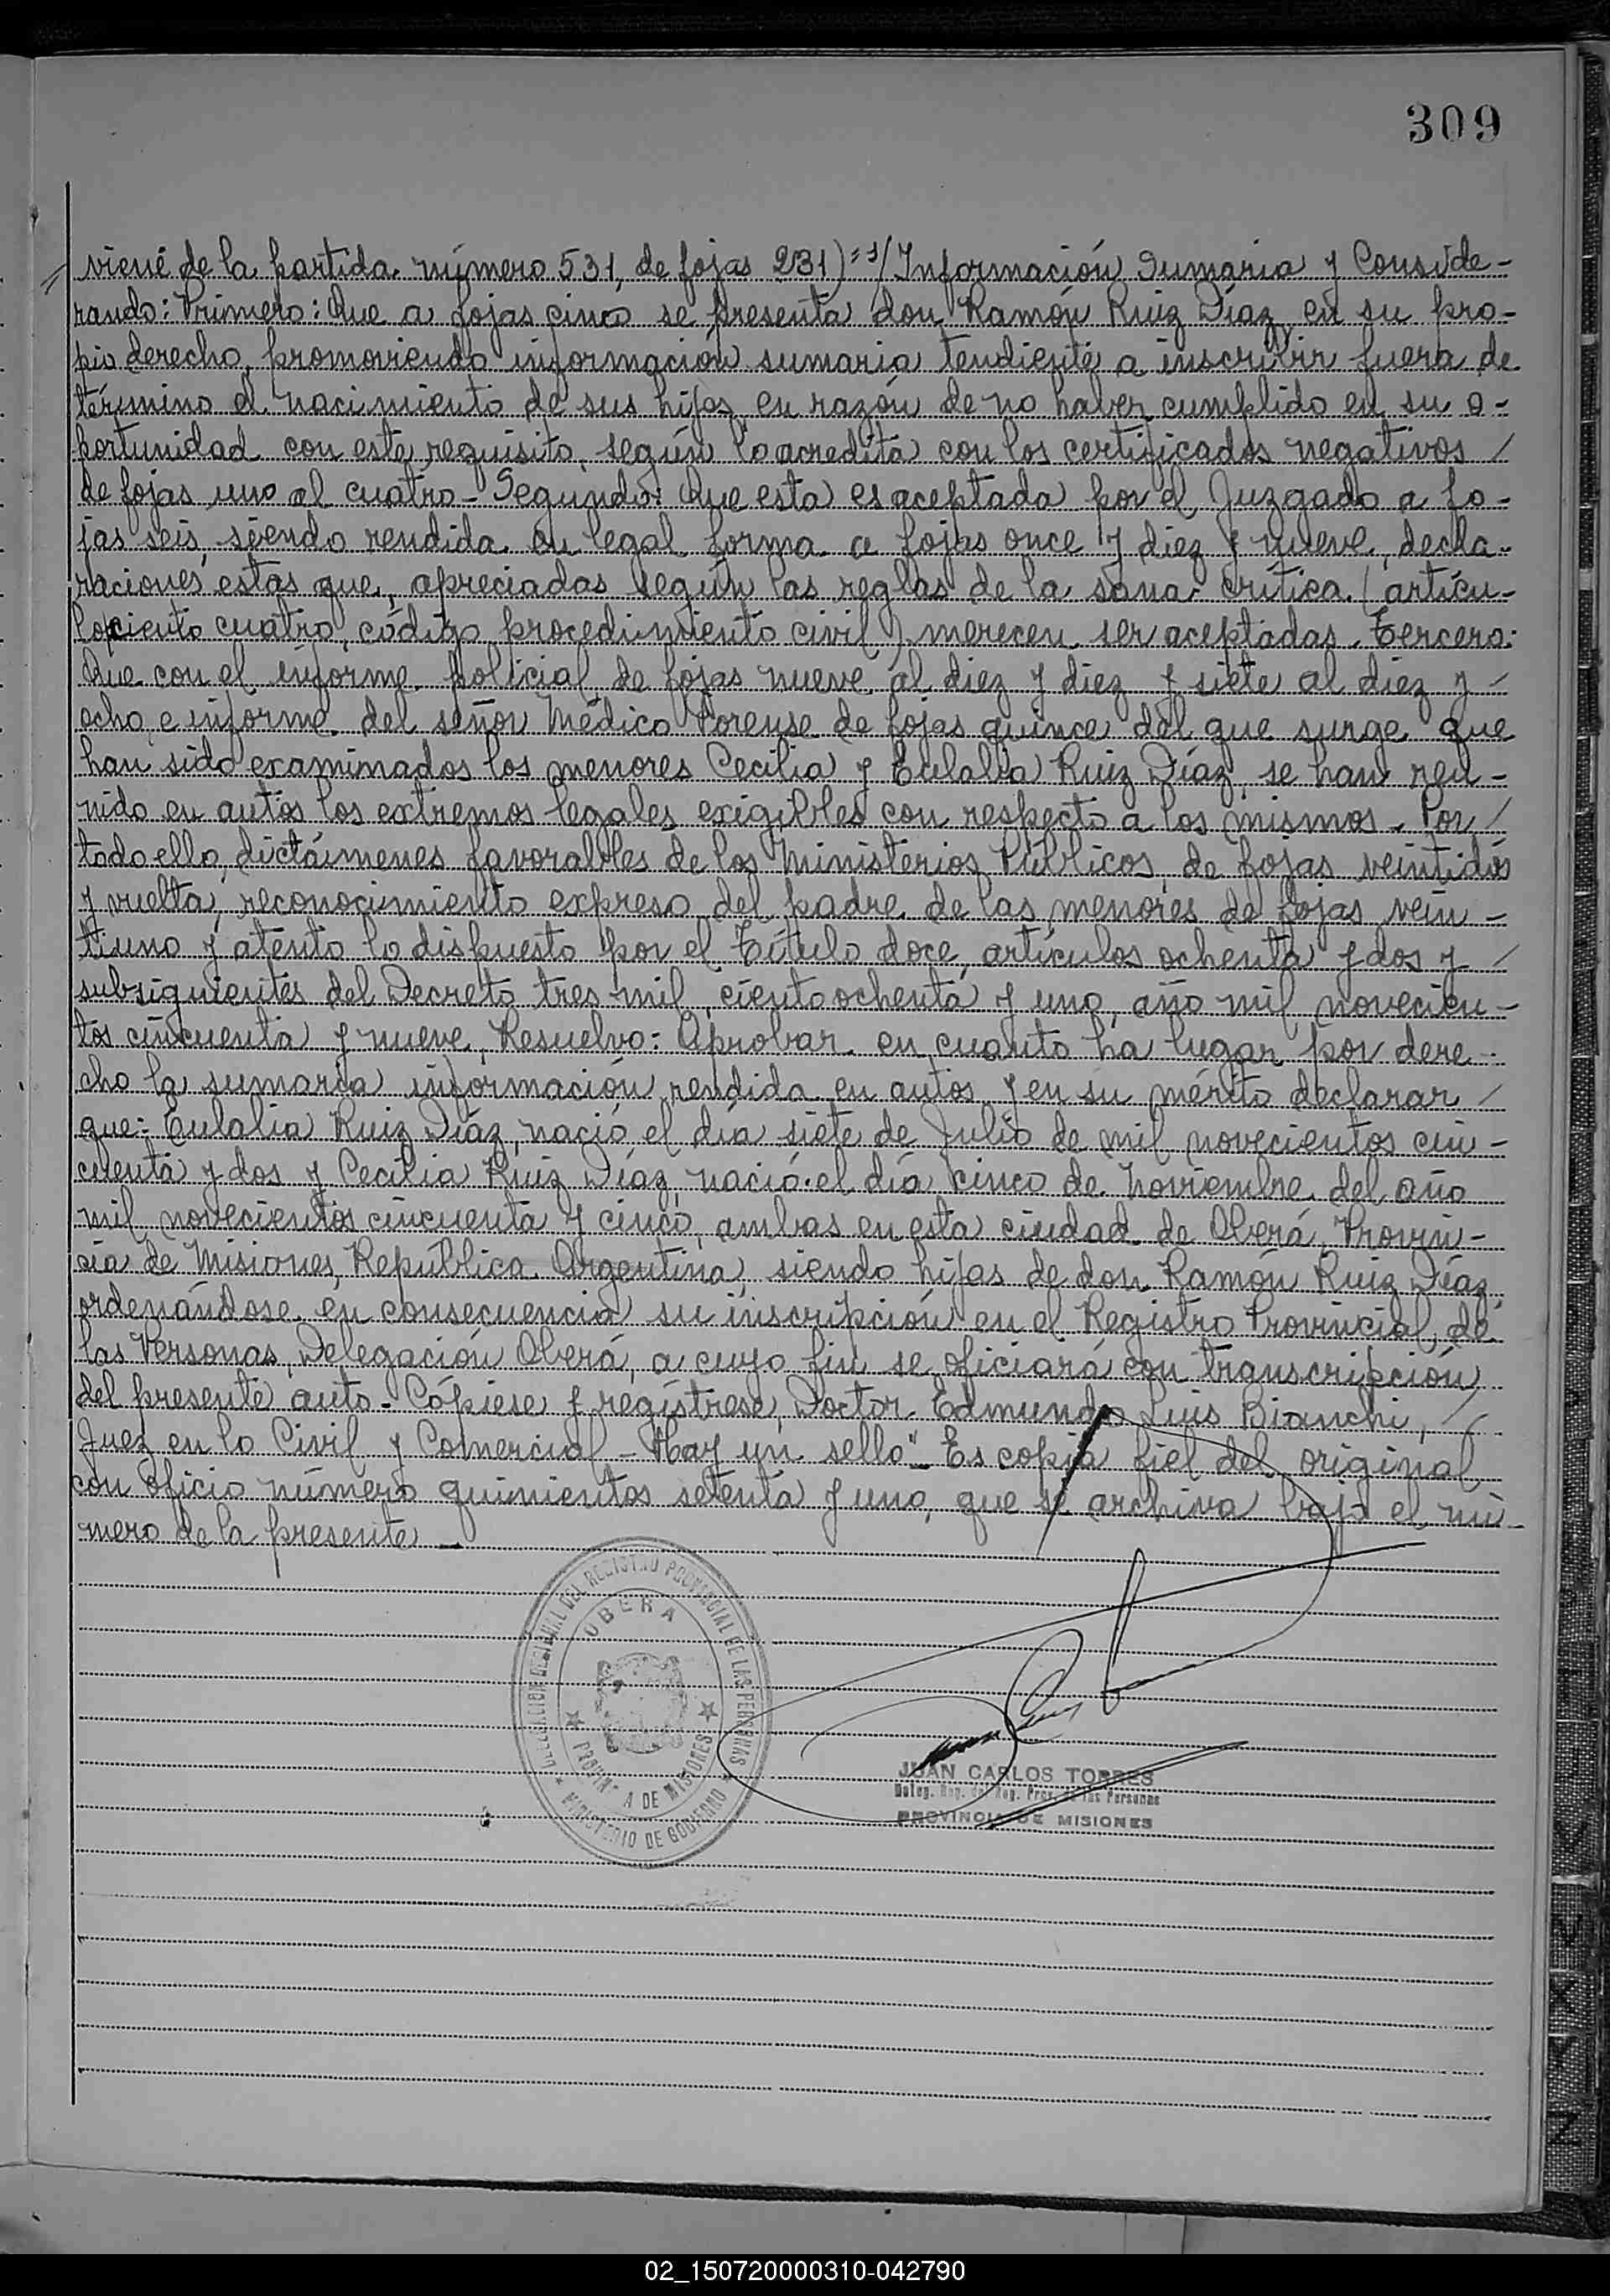 309
viene de la partida número 531, de fojas 231)=s/Información sumaria y Conside-
rando: Primero: Que a fojas cinco se presenta don Ramón Ruiz Díaz en su pro-
pio derecho, promoviendo información sumaria tendiente a inscribir fuera de
término el nacimiento de sus hijos en razón de no haber cumplido en su o-
portunidad con este requisito, según lo acredita con los certificados negativos /
de fojas uno al cuatro - Segundo: Que esta es aceptada por el Juzgado a fo-
jas seis, siendo rendida en legal forma a fojas once y diez y nueve, decla-
raciones estas que, apreciadas según las reglas de la sana crítica (artícu-
lo ciento cuatro, código procedimiento civil), merecen ser aceptadas. Tercero:
Que con el informe policial de fojas nueve al diez y diez y siete al diez y -
ocho e informe del señor Médico Forense de fojas quince del que surge que
han sido examinados los menores Cecilia y Eulalia Ruiz Díaz, se han reu-
nido en autos los extremos legales exigibles con respecto a los mismos. Por /
todo ello, dictámenes favorables de los Ministerios Públicos, de fojas veintidós
y vuelta, reconocimiento expreso del padre de las menores de fojas vein-
tiuno y atento lo dispuesto por el Título doce, artículos ochenta y dos y /
subsiguientes del Decreto tres mil ciento ochenta y uno, año mil novecien-
tos cincuenta y nueve, Resuelvo: Aprobar en cuanto ha lugar por dere-
cho la sumaria información rendida en autos y en su mérito declarar /
que: Eulalia Ruiz Díaz, nació el día siete de Julio de mil novecientos cin-
cuenta y dos y Cecilia Ruiz Díaz, nació el día cinco de Noviembre del año
mil novecientos cincuenta y cinco, ambas en esta ciudad de Oberá, Provin-
cia de Misiones, República Argentina, siendo hijas de don Ramón Ruiz Díaz
ordenándose en consecuencia su inscripción en el Registro Provincial de
las Personas, Delegación Oberá, a cuyo fin se oficiará con transcripción
del presente auto - Cópiese y regístrese, Doctor Edmundo Luis Bianchi, /
Juez en lo Civil y Comercial - Hay un sello" - Es copia fiel del original
con oficio número quinientos setenta y uno, que se archiva bajo el nú-
mero de la presente -
DELEGACION REGIONAL DEL REGISTRO PROVINCIAL DE LAS PERSONAS
OBERA
PROVINCIA DE MISIONES
MINISTERIO DE GOBIERNO
JUAN CARLOS TORRES
Deleg. Reg. del Reg. Prov. de las Personas
PROVINCIA DE MISIONES
02_150720000310-042790